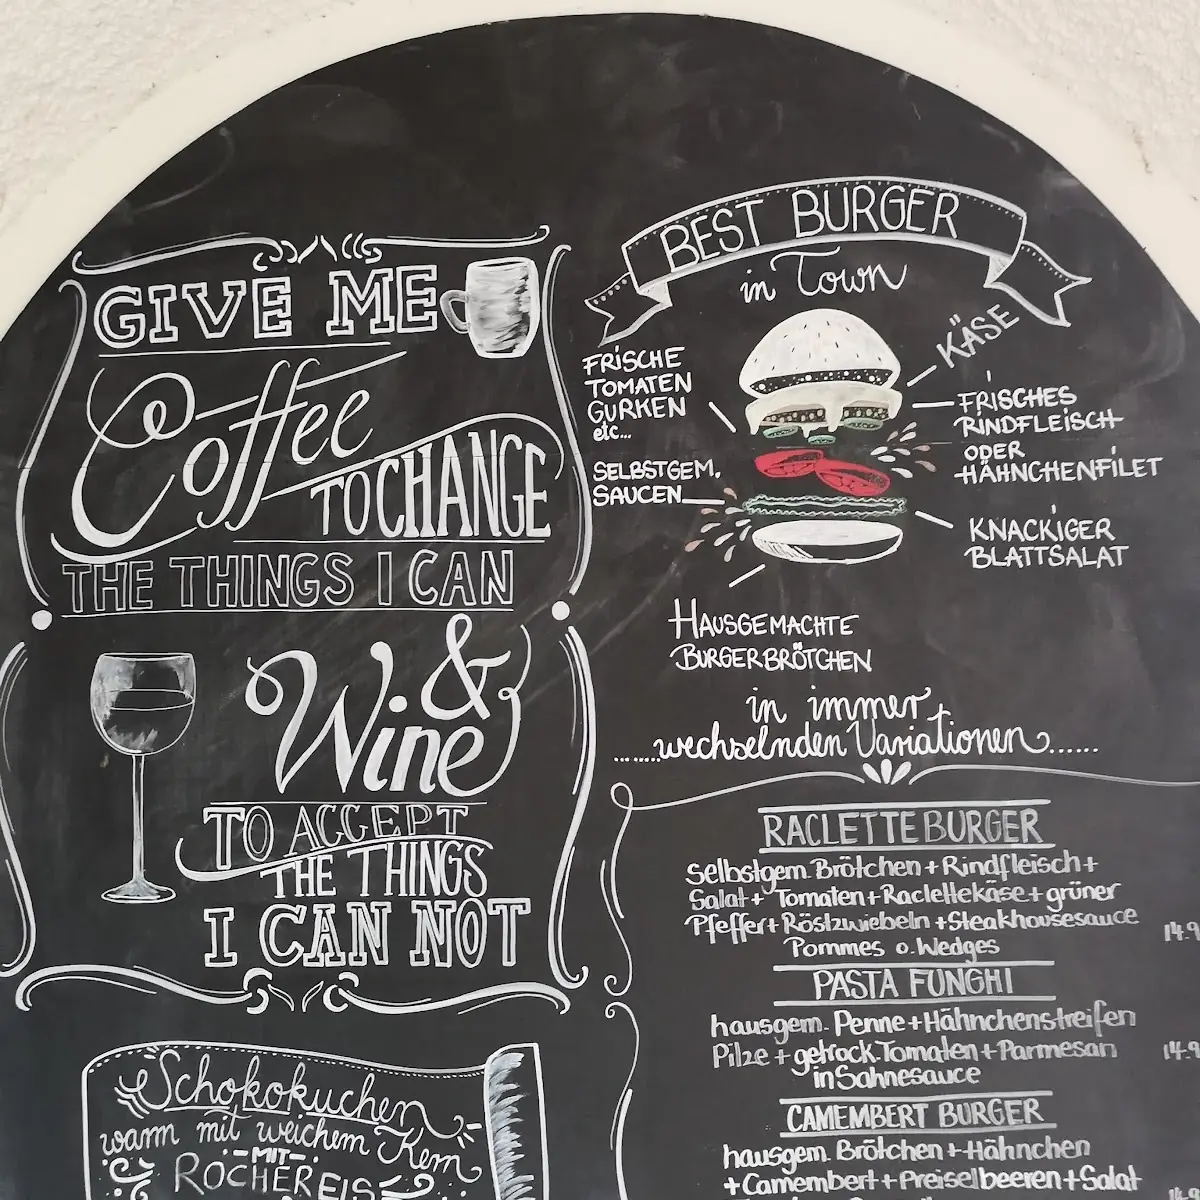 GIVE ME
Coffee
TO CHANGE
THE THINGS I CAN
&
Wine
TO ACCEPT
THE THINGS
I CAN NOT
Schokokuchen
warm mit weichem Kern
-MIT-
ROCHER EIS
BEST BURGER
in Town
FRISCHE
TOMATEN
GURKEN
etc...
SELBSTGEM.
SAUCEN
KÄSE
FRISCHES
RINDFLEISCH
ODER
HÄHNCHENFILET
KNACKIGER
BLATTSALAT
HAUSGEMACHTE
BURGERBRÖTCHEN
in immer
......wechselnden Variationen......
RACLETTE BURGER
Selbstgem. Brötchen + Rindfleisch +
Salat + Tomaten + Raclettekäse + grüner
Pfeffer + Röstzwiebeln + Steakhousesauce
14.9
Pommes o. Wedges
PASTA FUNGHI
hausgem. Penne + Hähnchenstreifen
Pilze + getrock. Tomaten + Parmesan
14.9
in Sahnesauce
CAMEMBERT BURGER
hausgem. Brötchen + Hähnchen
+ Camembert + Preiselbeeren + Salat